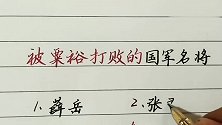 被粟裕打败的国军名将
1.薛岳 2.张